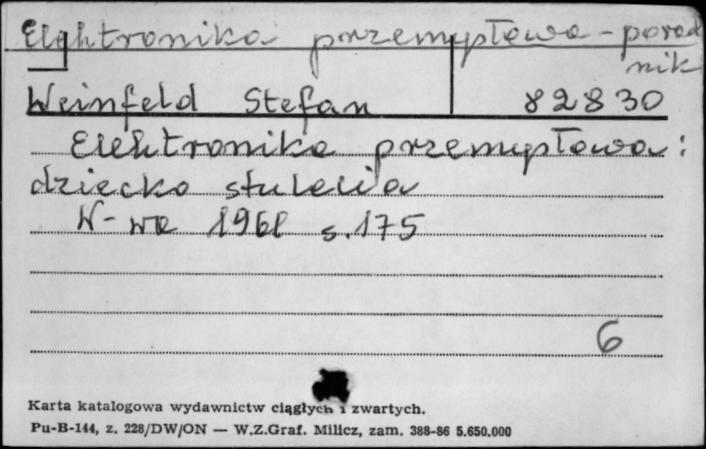 Elektronika przemysłowa - porad
nik
Weinfeld Stefan 82830
Elektronika przemysłowa:
dziecko stulecia
W-wa 1968 s.175
6
Karta katalogowa wydawnictw ciągłych i zwartych.
Pu-B-144, z. 228/DW/ON — W.Z.Graf. Milicz, zam. 388-86 5.650.000